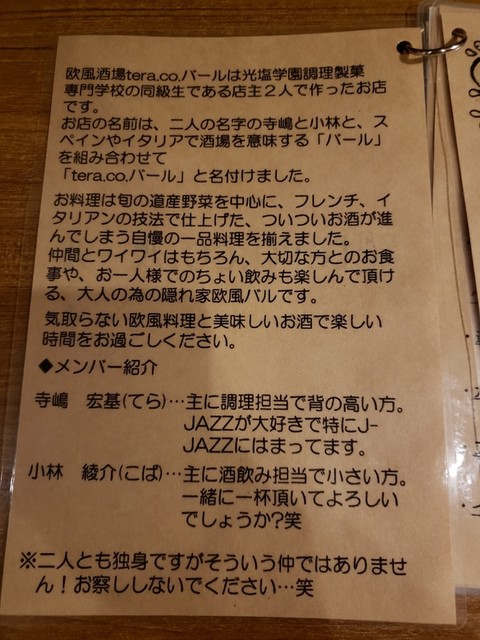 欧風酒場tera.co.バールは光塩学園調理製菓
専門学校の同級生である店主２人で作ったお店
です。
お店の名前は、二人の名字の寺嶋と小林と、ス
ペインやイタリアで酒場を意味する「バール」
を組み合わせて
「tera.co.バール」と名付けました。
お料理は旬の道産野菜を中心に、フレンチ、イ
タリアンの技法で仕上げた、ついついお酒が進
んでしまう自慢の一品料理を揃えました。
仲間とワイワイはもちろん、大切な方とのお食
事や、お一人様でのちょい飲みも楽しんで頂け
る、大人の為の隠れ家欧風バルです。
気取らない欧風料理と美味しいお酒で楽しい
時間をお過ごしください。
◆メンバー紹介
寺嶋　宏基(てら)…主に調理担当で背の高い方。
JAZZが大好きで特にJ-
JAZZにはまってます。
小林　綾介(こば)…主に酒飲み担当で小さい方。
一緒に一杯頂いてよろしい
でしょうか?笑
※二人とも独身ですがそういう仲ではありませ
ん！お察ししないでください…笑